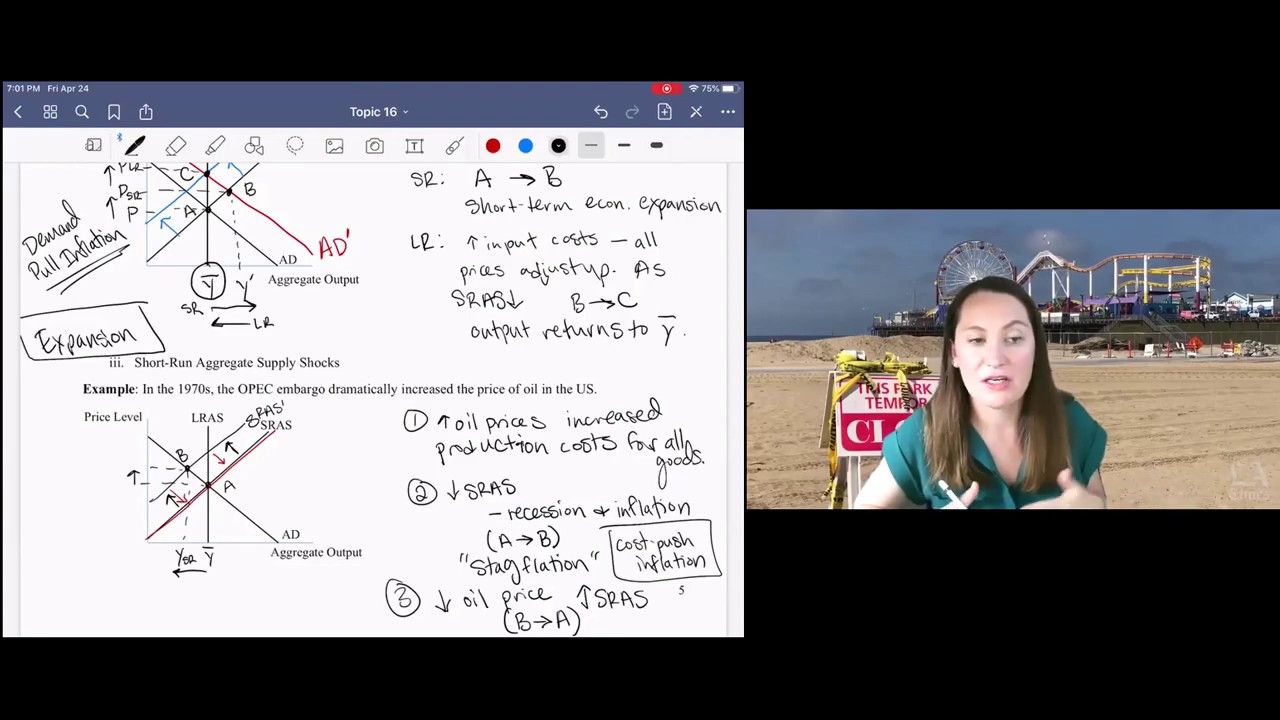 7:01 PM Fri Apr 24
75%
Topic 16
↑ PLR
C
B
↑ PSR
↑ P
A
Demand
Pull Inflation
AD'
AD
Aggregate Output
Y̅ Y'
SR →
← LR
Expansion
SR: A → B
Short-term econ. expansion
LR: ↑ input costs – all
prices adjust up. As
SRAS↓ B → C
output returns to Y̅.
iii. Short-Run Aggregate Supply Shocks
Example: In the 1970s, the OPEC embargo dramatically increased the price of oil in the US.
Price Level
LRAS
SRAS'
SRAS
B
A
AD
Aggregate Output
YSR Y̅
① ↑ oil prices increased
production costs for all
goods.
② ↓ SRAS
– recession & inflation
(A → B)
"Stagflation"
cost-push
inflation
③ ↓ oil price ↑ SRAS
(B → A)
5
THIS PARK
TEMPOR
CL